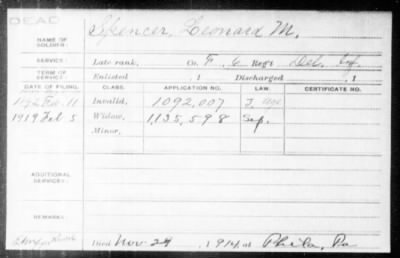 DEAD
NAME OF SOLDIER: Spencer, Leonard M.
SERVICE: Late rank, Co. F, 6 Reg't Del. Inf.
TERM OF SERVICE: Enlisted , 1 Discharged , 1
DATE OF FILING. CLASS. APPLICATION NO. LAW. CERTIFICATE NO.
Feb. 11 Invalid, 1092,007
1919 Feb 5 Widow, 1,135,598 Sep.
Minor,
ADDITIONAL SERVICES:
REMARKS:
Died Nov 24, 1914, at Phila, Pa